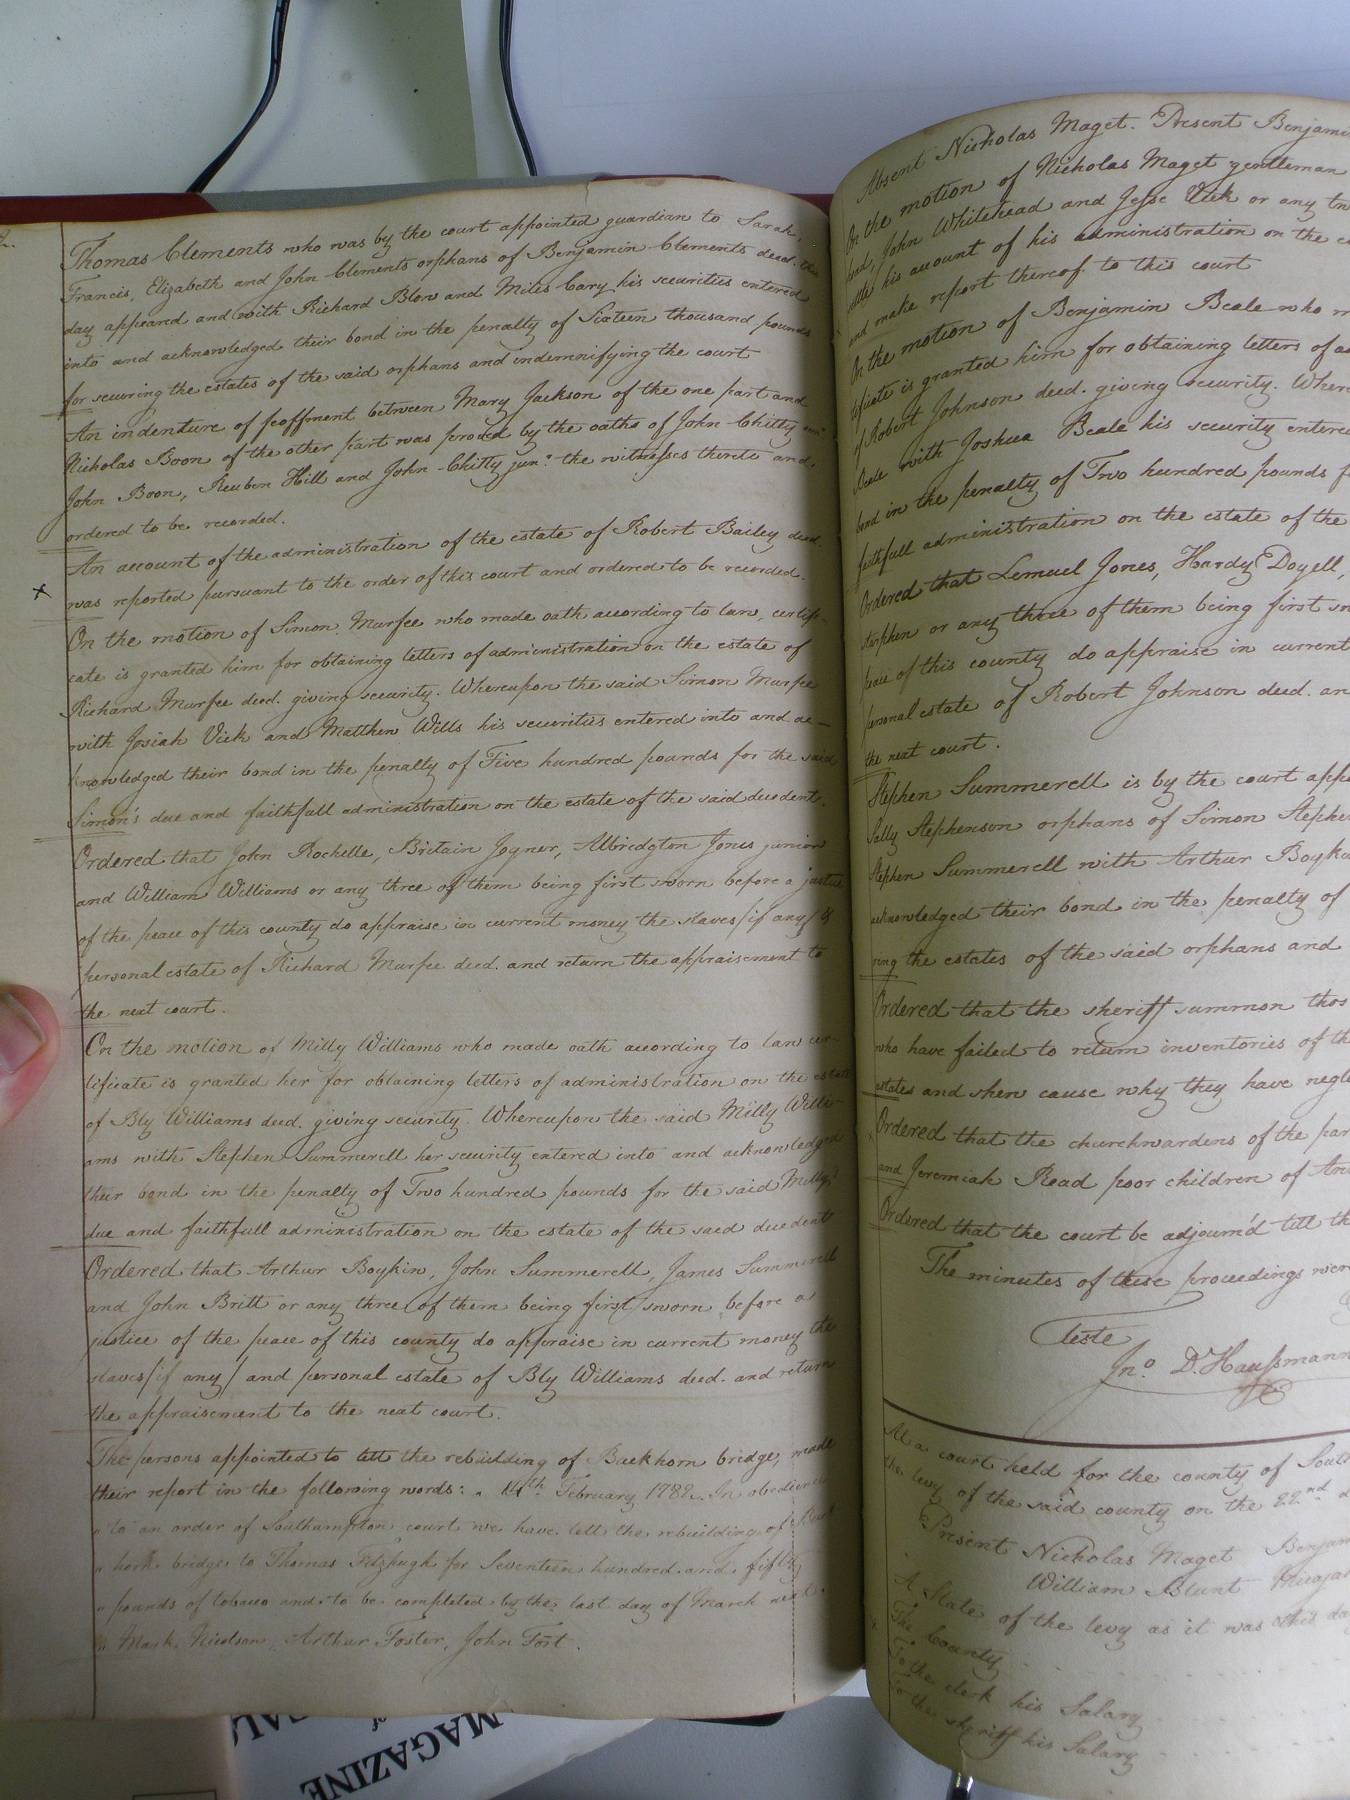 Thomas Clements who was by the court appointed guardian to Sarah,
Francis, Elizabeth and John Clements orphans of Benjamin Clements deced. this
day appeared and with Richard Blow and Miles Cary his securities entered
into and acknowledged their bond in the penalty of Sixteen thousand pounds
for securing the estates of the said orphans and indemnifying the court
An indenture of feoffment between Mary Jackson of the one part and
Nicholas Boon of the other part was proved by the oaths of John Chitty
John Boon, Reuben Hill and John Chitty junr. the witnesses thereto and
ordered to be recorded.
An account of the administration of the estate of Robert Bailey deced.
x was reported pursuant to the order of this court and ordered to be recorded.
On the motion of Simon Murfee who made oath according to law, certifi-
cate is granted him for obtaining letters of administration on the estate of
Richard Murfee deced. giving security. Whereupon the said Simon Murfee
with Josiah Vick and Matthew Wills his securities entered into and ac-
knowledged their bond in the penalty of Five hundred pounds for the said
Simon's due and faithfull administration on the estate of the said decedent.
Ordered that John Rochelle, Britain Joyner, Albridgton Jones junior
and William Williams or any three of them being first sworn before a justice
of the peace of this county do appraise in current money the slaves/if any/ &
personal estate of Richard Murfee deced. and return the appraisement to
the next court.
On the motion of Milly Williams who made oath according to law cer-
tificate is granted her for obtaining letters of administration on the estate
of Bly Williams deced. giving security. Whereupon the said Milly Willi-
ams with Stephen Summerell her security entered into and acknowledged
their bond in the penalty of Two hundred pounds for the said Milly's
due and faithfull administration on the estate of the said decedent
Ordered that Arthur Boykin, John Summerell, James Summerell
and John Britt or any three of them being first sworn before a
justice of the peace of this county do appraise in current money the
slaves/if any/ and personal estate of Bly Williams deced. and return
the appraisement to the next court.
The persons appointed to lett the rebuilding of Buckhorn bridge, made
their report in the following words: " 14th February 1782. In obedience
" to an order of Southampton court we have lett the rebuilding of Buck
" horn bridge to Thomas Fitzhugh for Seventeen hundred and fifty
" pounds of tobacco and to be completed by the last day of March next.
" Mark Nicolson, Arthur Foster, John Fort.
Absent Nicholas Maget. Present Benjami
On the motion of Nicholas Maget gentleman
head, John Whitehead and Jesse Vick or any
settle his account of his administration on the
and make report thereof to this court
On the motion of Benjamin Beale who
tificate is granted him for obtaining letters of
of Robert Johnson deced. giving security. Where
Beale with Joshua Beale his security entere
bond in the penalty of Two hundred pounds
faithfull administration on the estate of the
Ordered that Lemuel Jones, Hardy Doyell,
or any three of them being first
peace of this county do appraise in current
personal estate of Robert Johnson deced. an
the next court.
Stephen Summerell is by the court app
Sally Stephenson orphans of Simon Stephe
Stephen Summerell with Arthur Boyk
acknowledged their bond in the penalty of
ring the estates of the said orphans and
Ordered that the sheriff summon thos
who have failed to return inventories of th
estates and shew cause why they have negl
Ordered that the churchwardens of the par
and Jeremiah Read poor children of
Ordered that the court be adjourn'd till th
The minutes of these proceedings wer
Teste
Jno. D. Haussmann
At a court held for the county of Sout
the levy of the said county on the 22nd d
Present Nicholas Maget Benjam
William Blunt
A State of the levy as it was this da
The County
To the clerk his Salary
To the sheriff his Salary
MAGAZINE
of